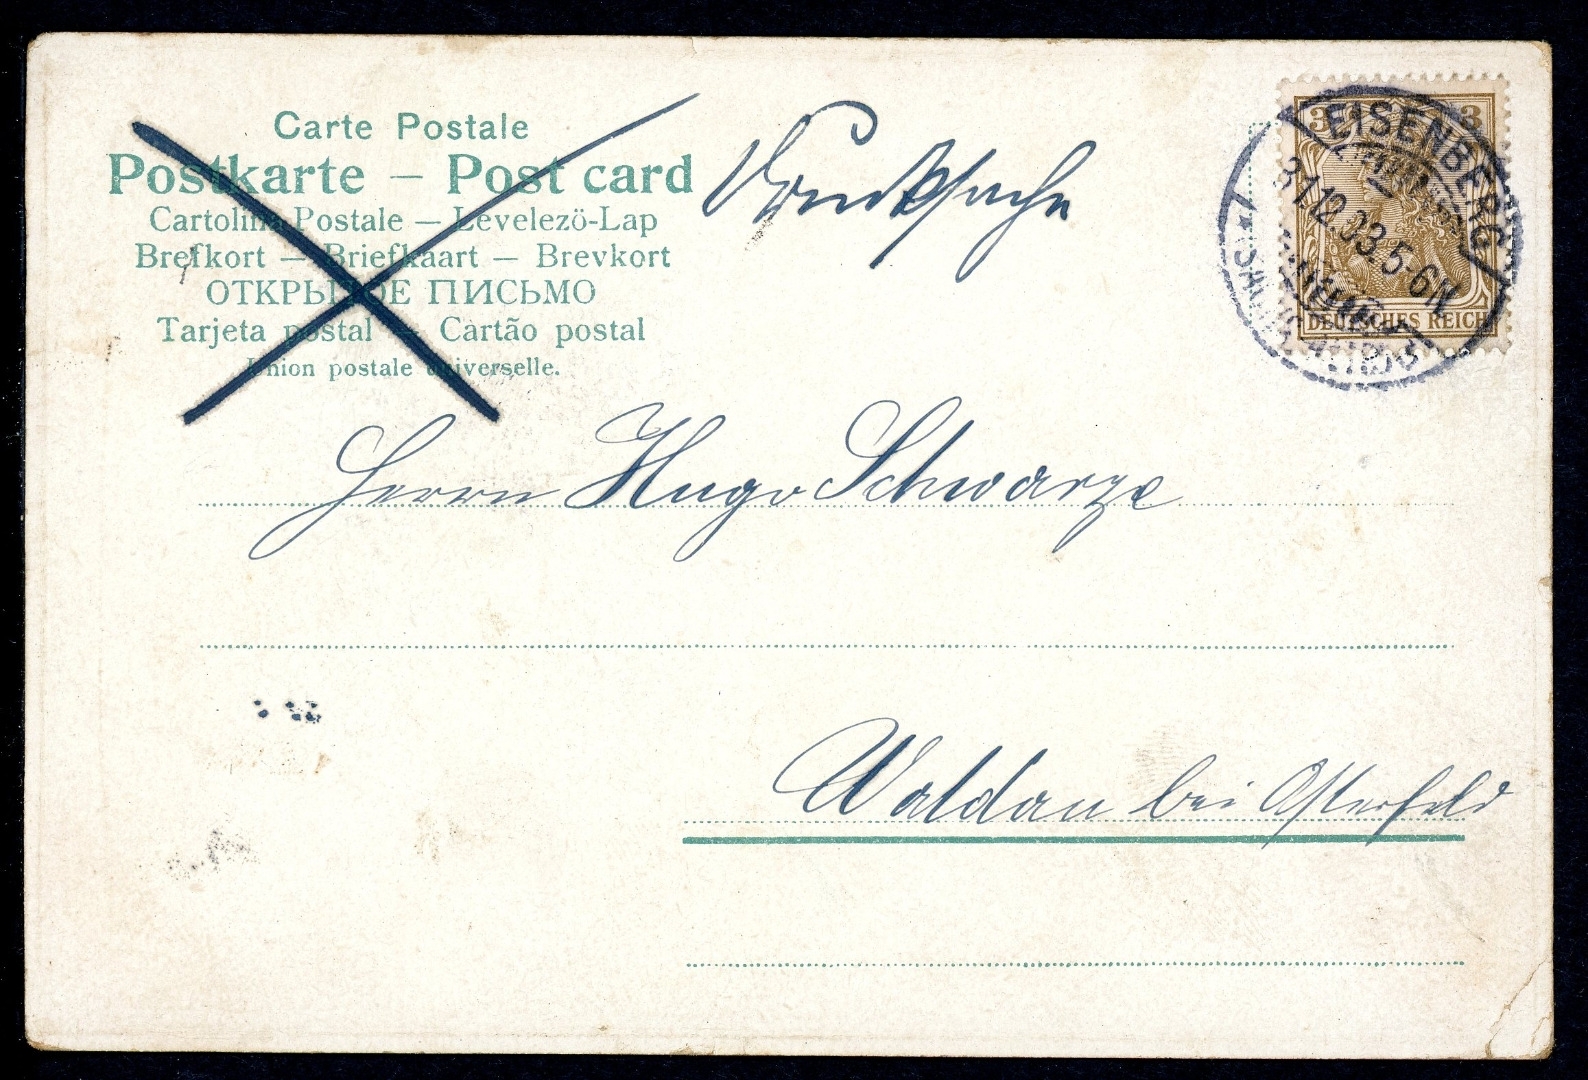 Carte Postale
Postkarte — Post card
Cartolina Postale — Levelezö-Lap
Brefkort — Briefkaart — Brevkort
ОТКРЫТОЕ ПИСЬМО
Tarjeta postal — Cartão postal
Union postale universelle.
Drucksache
3 3
DEUTSCHES REICH
EISENBERG
31.12.03.5-6N
Herrn Hugo Schwarze
Waldau bei Osterfeld